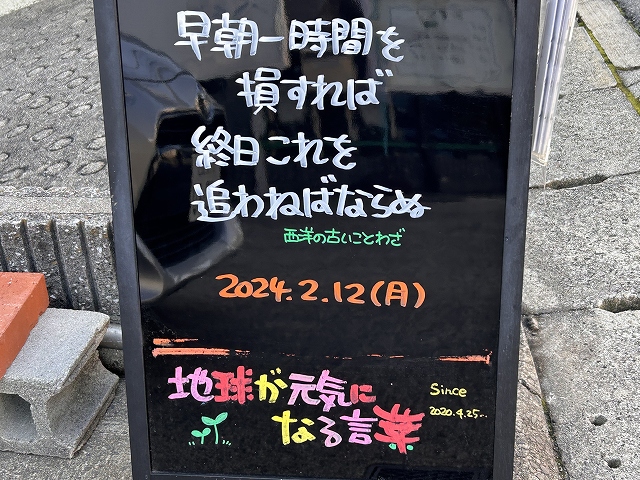 早朝一時間を
損すれば
終日これを
追わねばならぬ
西洋の古いことわざ
2024.2.12(月)
地球が元気に
なる言葉
Since
2020.4.25...